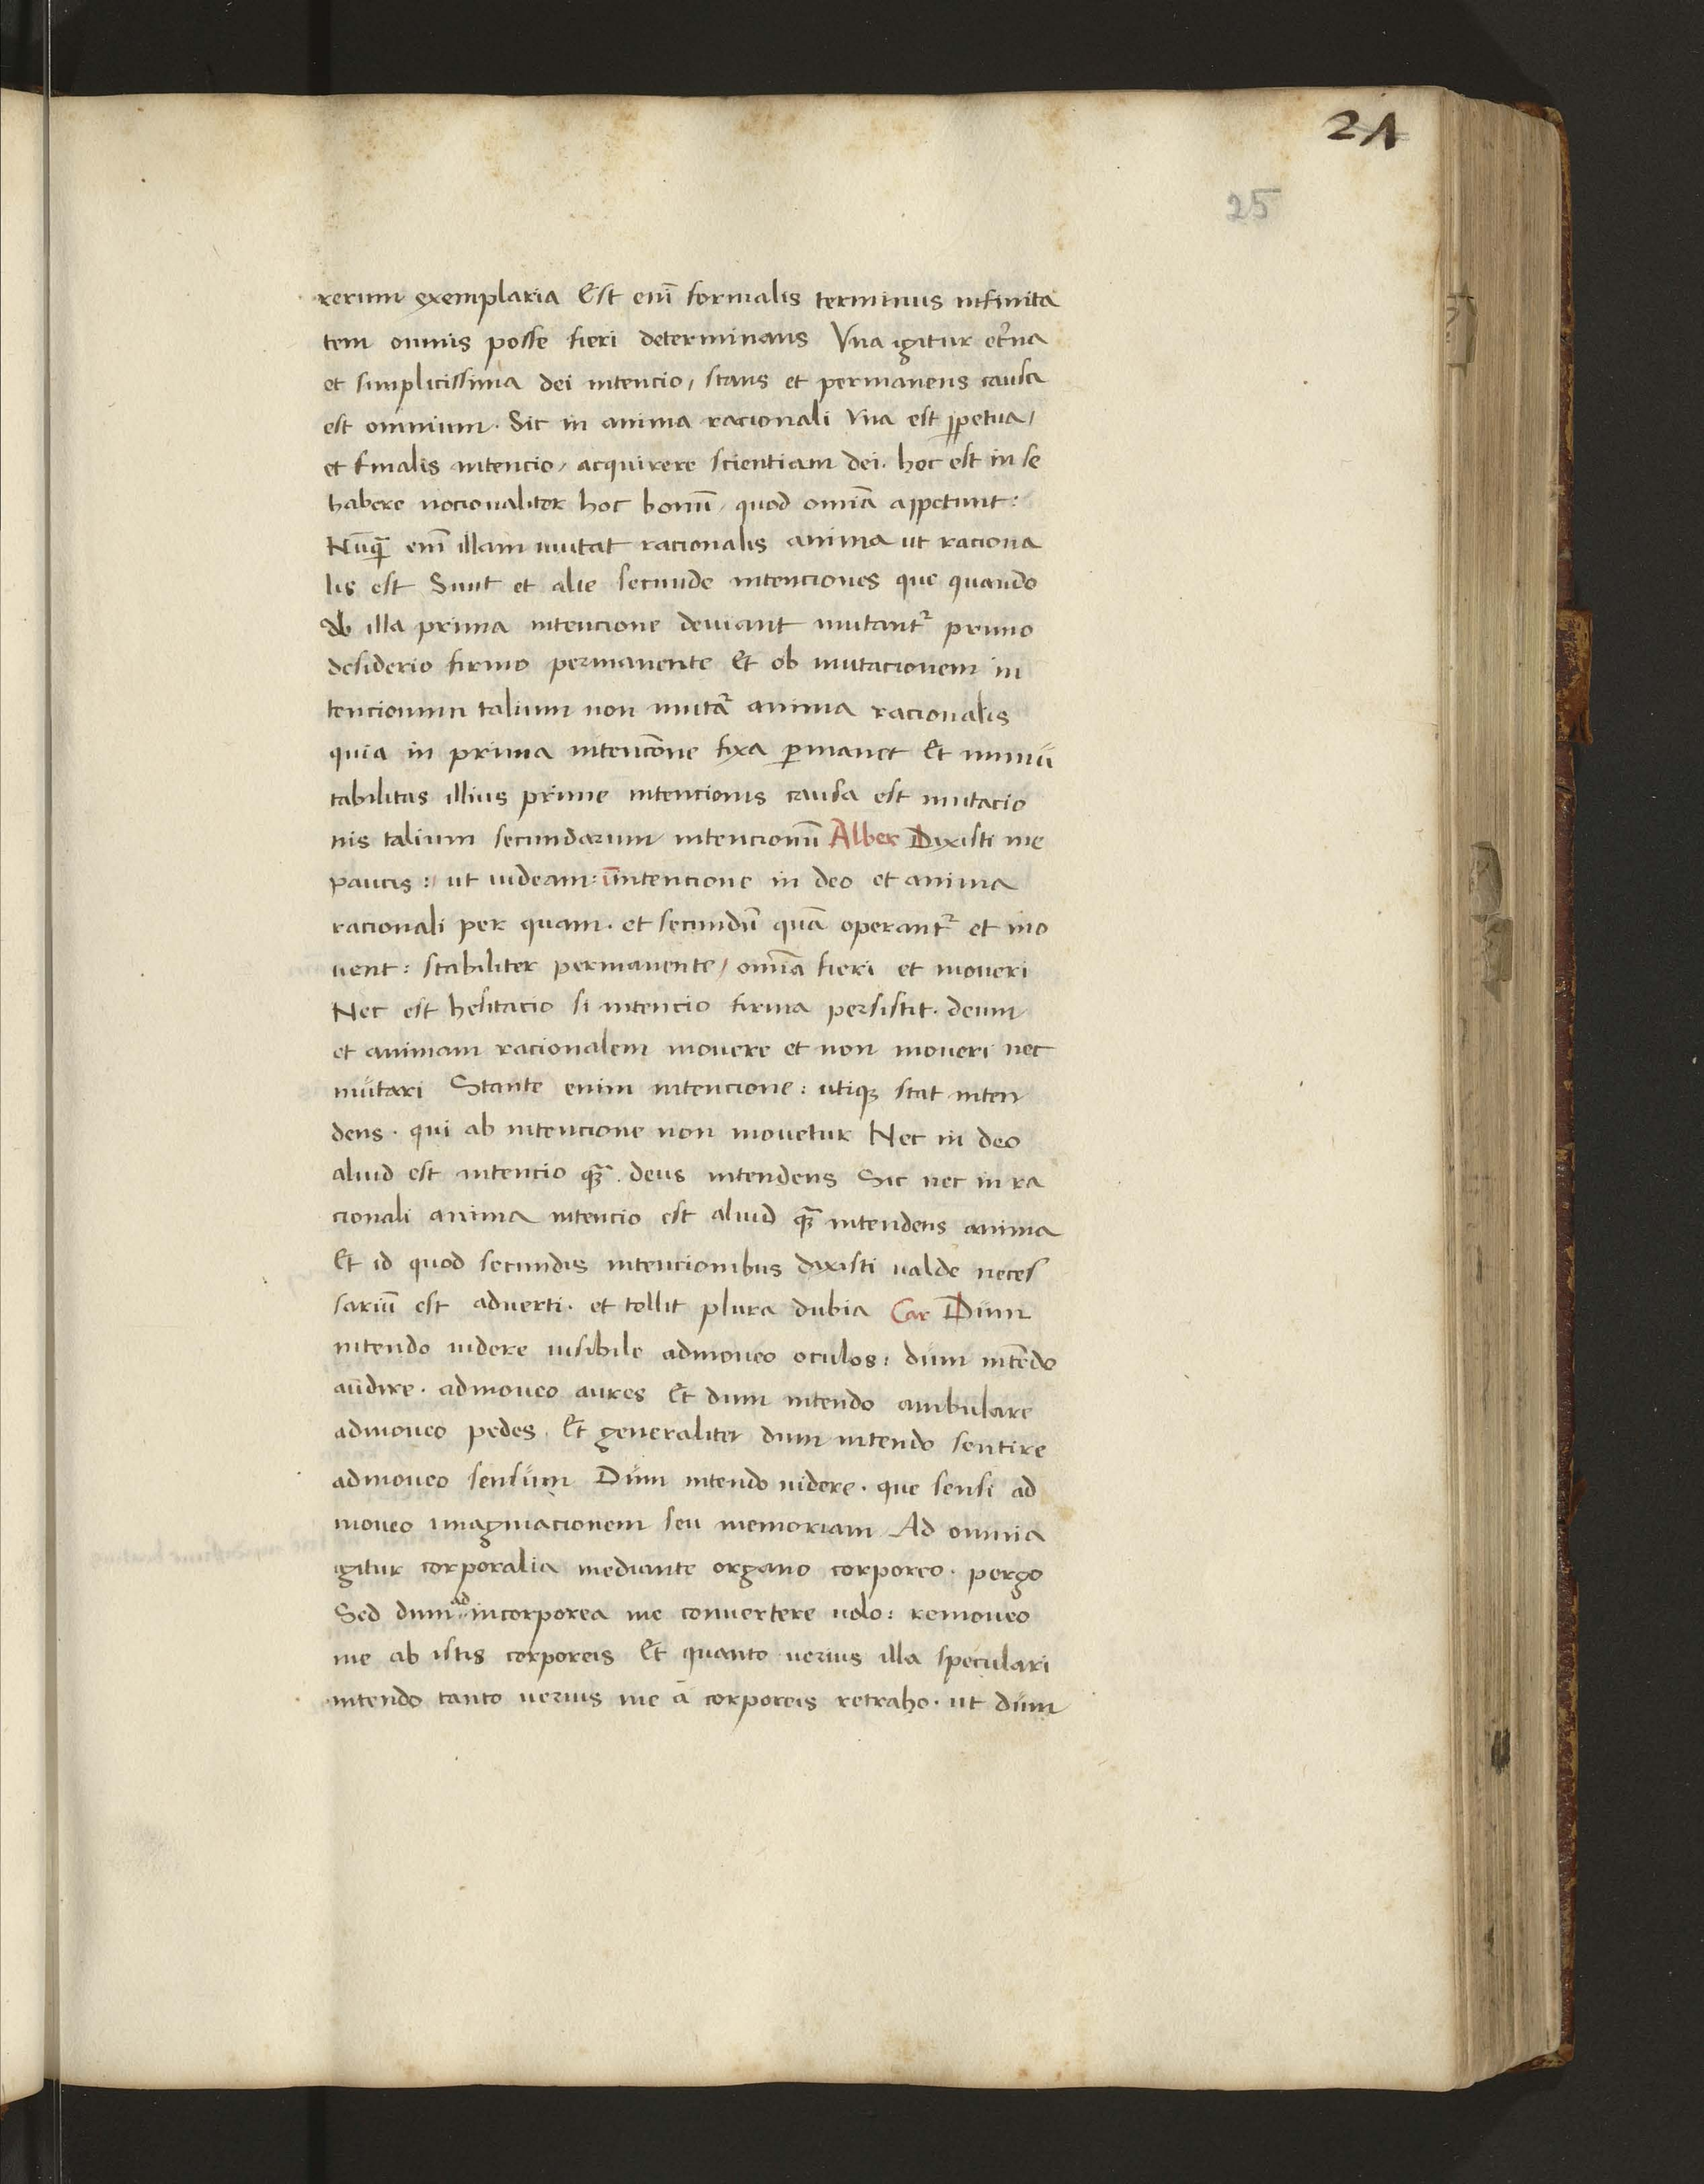 21
25
rerum exemplaria Est enī formalis terminus infinita
tem omnis posse fieri determinans Vna igitur et̄na
et simplicissima dei intencio, stans et permanens causa
est omnium. Sic in anima racionali vna est ꝑpetua,
et finalis intencio, acquirere scientiam dei. hoc est in se
habere nocionaliter hoc bonū, quod omīa appetunt:
Nūqꝫ̄ enī illam mutat racionalis anima ut raciona
lis est Sunt et alie secunde intenciones que quando
ab illa prima intencione deuiant mutantᷣ primo
desiderio firmo permanente Et ob mutacionem in
tencionum talium non mutaᷣ anima racionalis
quia in prima intencōne fixa ꝑmanet Et immu
tabilitas illius prime intencionis causa est mutacio
nis talium secundarum intencionū Alber Dixisti me
paucis: ut uideam: intencione in deo et anima
racionali per quam. et secundū quā operantᷣ et mo
uent: stabiliter permanente, omīa fieri et moueri
Nec est hesitacio si intencio firma persistit. deum
et animam racionalem mouere et non moueri nec
mutari Stante enim intencione: utiqꝫ stat inten
dens. qui ab intencione non mouetur Nec in deo
aliud est intencio qꝫ̄. deus intendens Sic nec in ra
cionali anima intencio est aliud qꝫ̄ intendens anima
Et id quod secundis intencionibus dixisti ualde neces
sariū est aduerti. et tollit plura dubia Car Dum
intendo uidere uisibile admoueo oculos: dum intēdo
audire. admoueo aures Et dum intendo ambulare
admoueo pedes. Et generaliter dum intendo sentire
admoueo sensum Dum intendo uidere. que sensi ad
moueo imaginacionem seu memoriam Ad omnia
igitur corporalia mediante organo corporeo. pergo
Sed dum ad incorporea me conuertere uolo: remoueo
me ab istis corporeis Et quanto uerius illa speculari
intendo tanto uerius me a corporeis retraho. ut dum